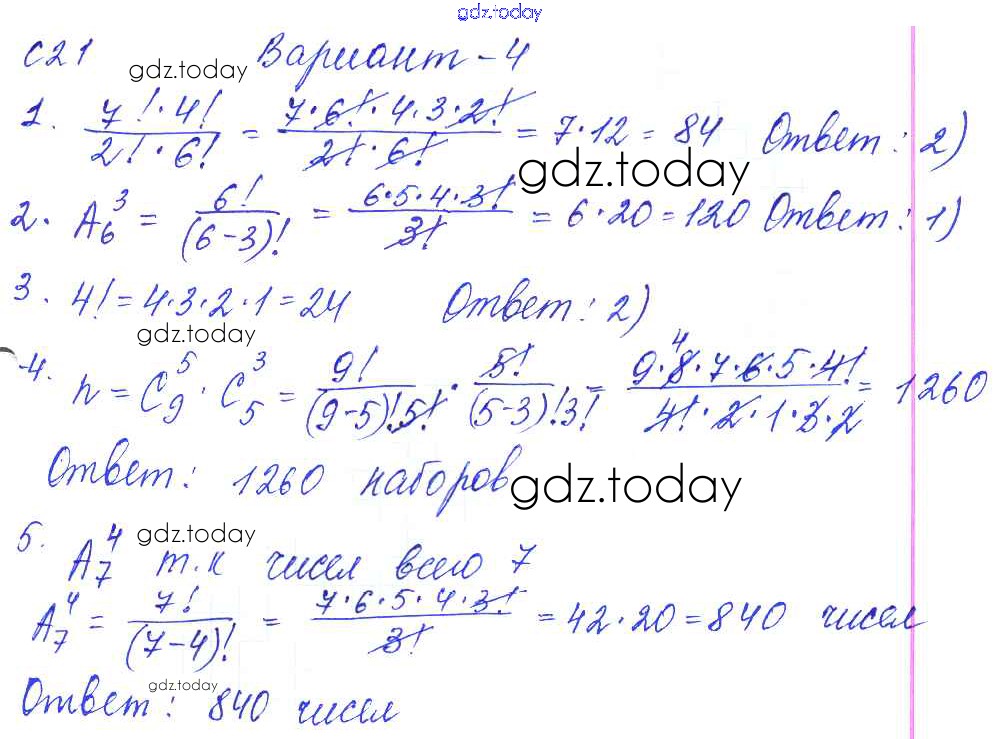 gdz.today
С21 gdz.today Вариант - 4
1. 7!·4! / 2!·6! = 7·6!·4·3·2! / 2!·6! = 7·12 = 84 Ответ: 2)
gdz.today
2. A₆³ = 6! / (6-3)! = 6·5·4·3! / 3! = 6·20 = 120 Ответ: 1)
3. 4! = 4·3·2·1 = 24 Ответ: 2)
gdz.today
4. n = C₉⁵ · C₅³ = 9! / (9-5)!5! · 5! / (5-3)!3! = 9·8⁴·7·6·5·4! / 4!·2·1·3·2 = 1260
Ответ: 1260 наборов gdz.today
5. gdz.today
A₇⁴ т.к чисел всего 7
A₇⁴ = 7! / (7-4)! = 7·6·5·4·3! / 3! = 42·20 = 840 чисел
gdz.today
Ответ: 840 чисел